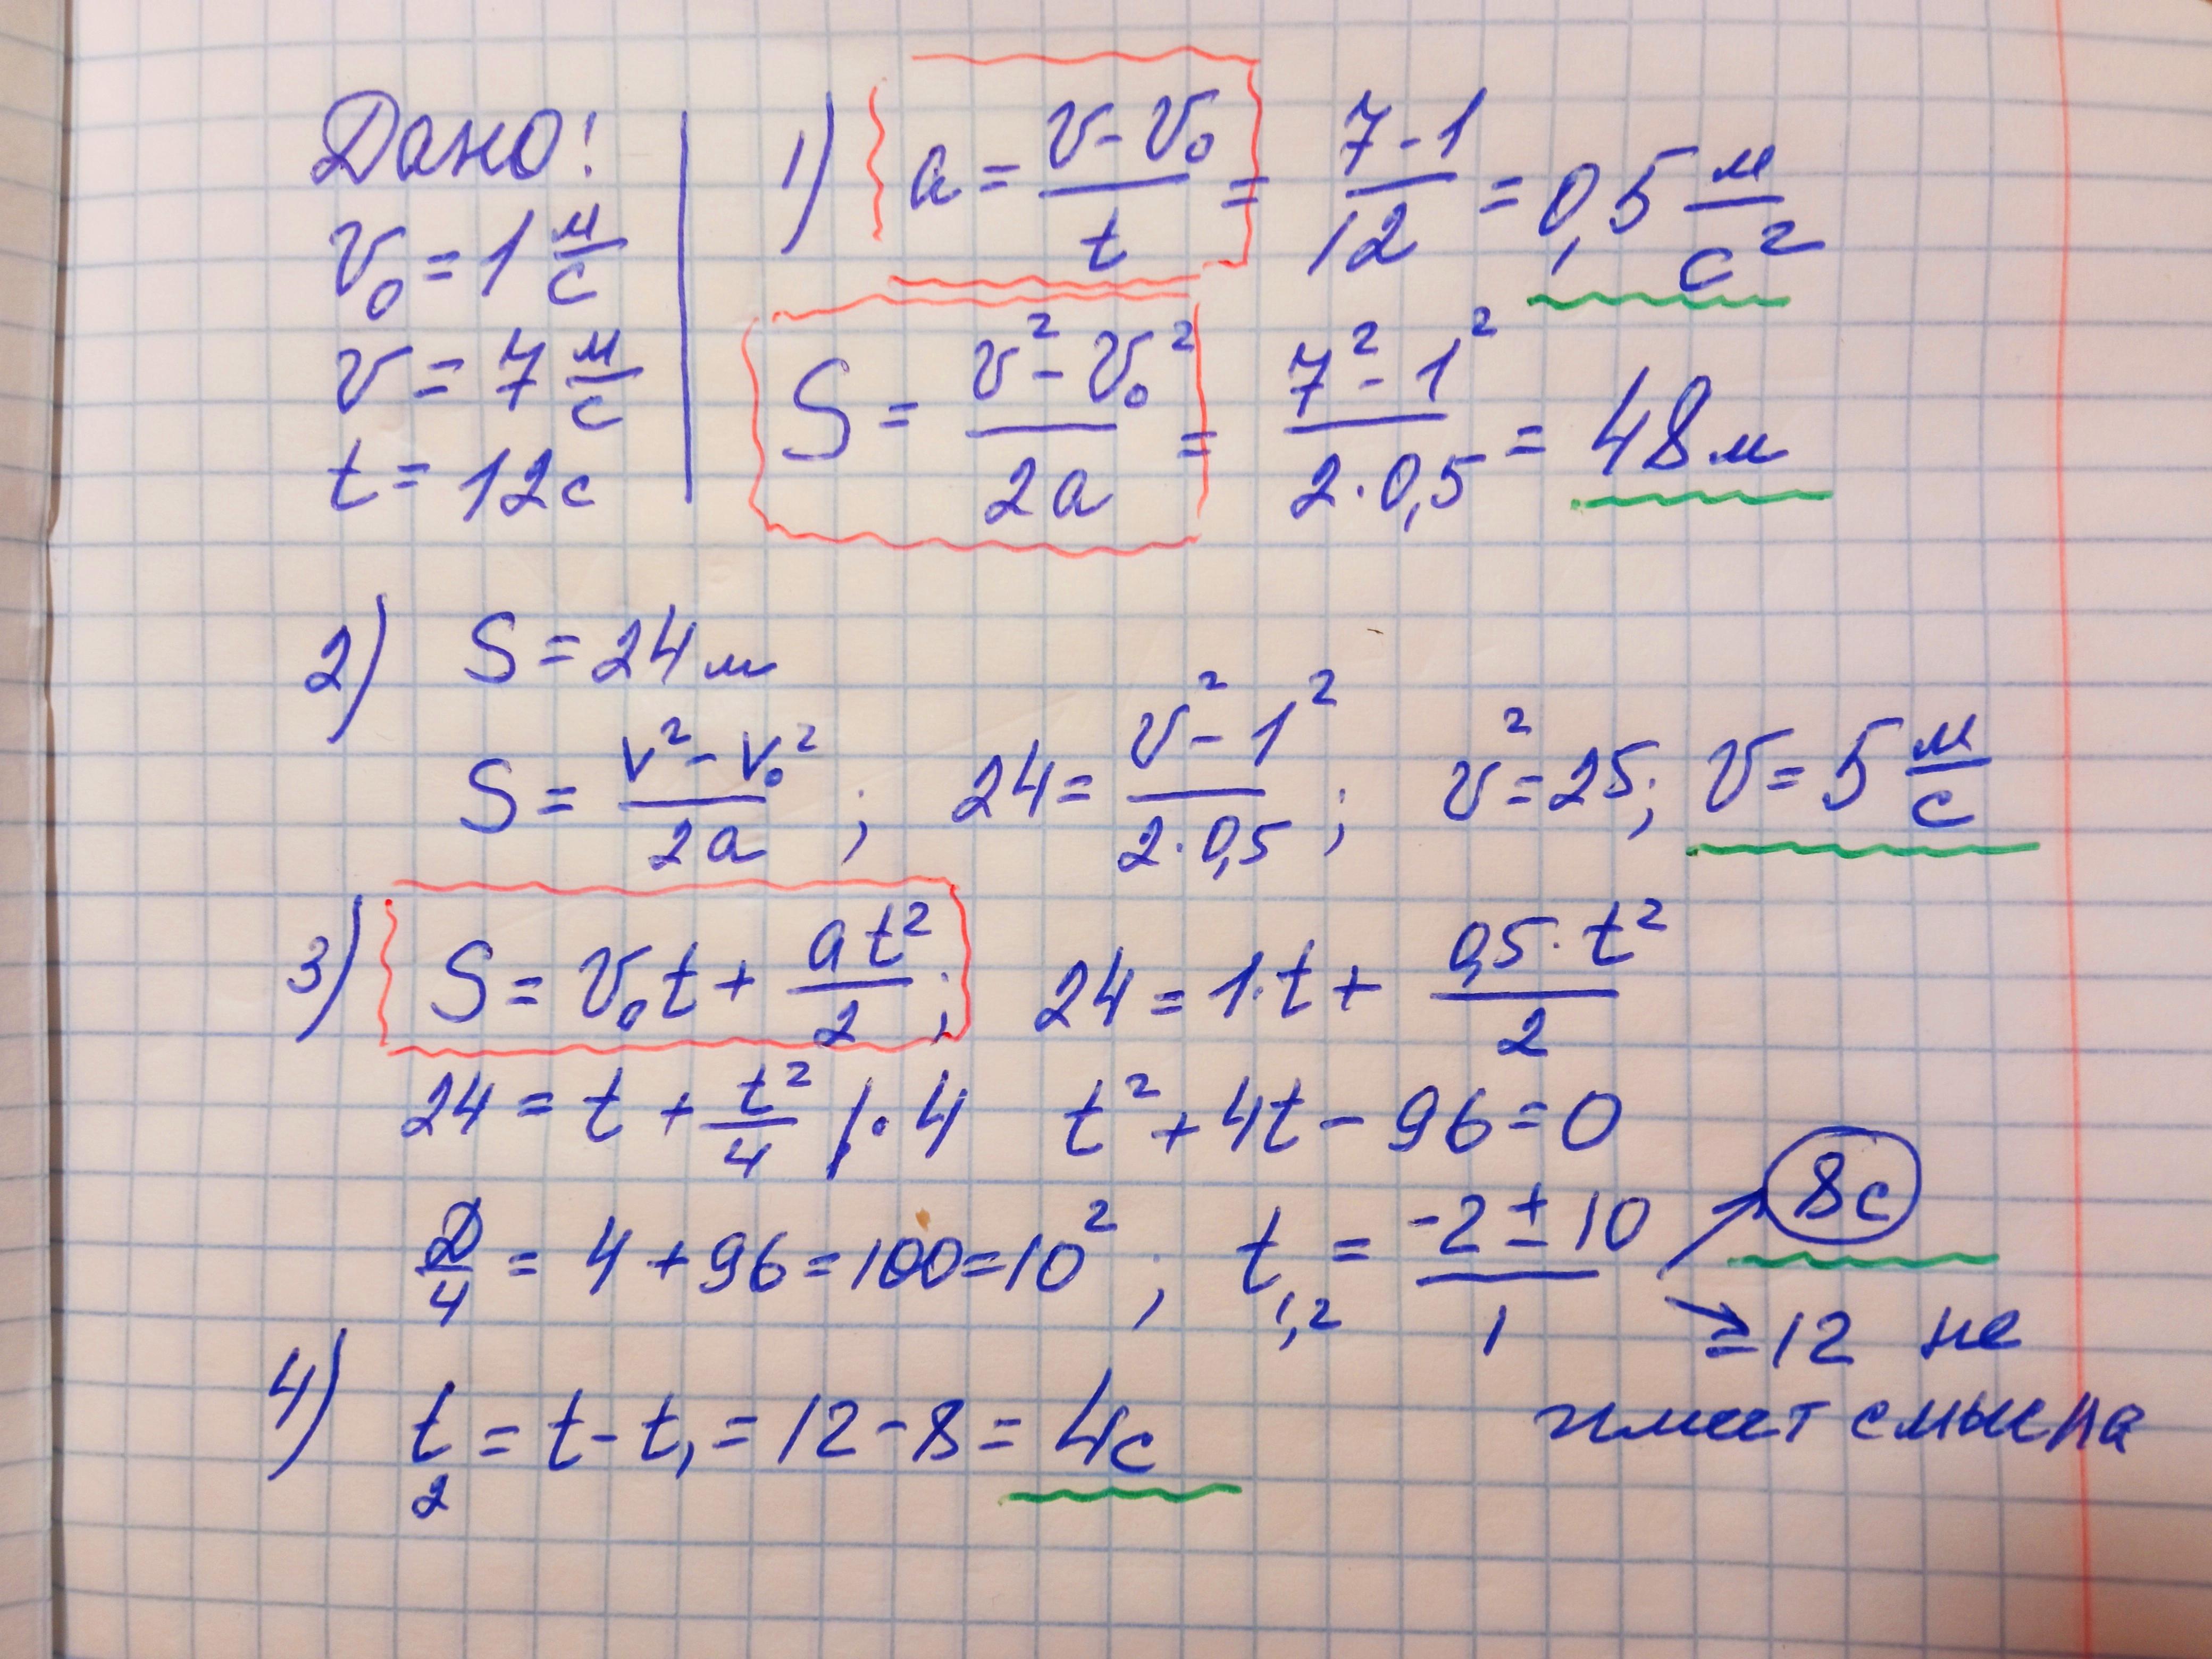 Дано:
v₀ = 1 м/с
v = 7 м/с
t = 12с
1) a = (v - v₀)/t = (7 - 1)/12 = 0,5 м/с²
S = (v² - v₀²)/2a = (7² - 1²)/(2·0,5) = 48м
2) S = 24м
S = (v² - v₀²)/2a ; 24 = (v² - 1²)/(2·0,5) ; v² = 25; v = 5 м/с
3) S = v₀t + at²/2 ; 24 = 1·t + 0,5·t²/2
24 = t + t²/4 |·4 t² + 4t - 96 = 0
D/4 = 4 + 96 = 100 = 10² ; t₁,₂ = (-2 ± 10)/1 ↗ 8с
↘ = 12 не
имеет смысла
4) t₂ = t - t₁ = 12 - 8 = 4с